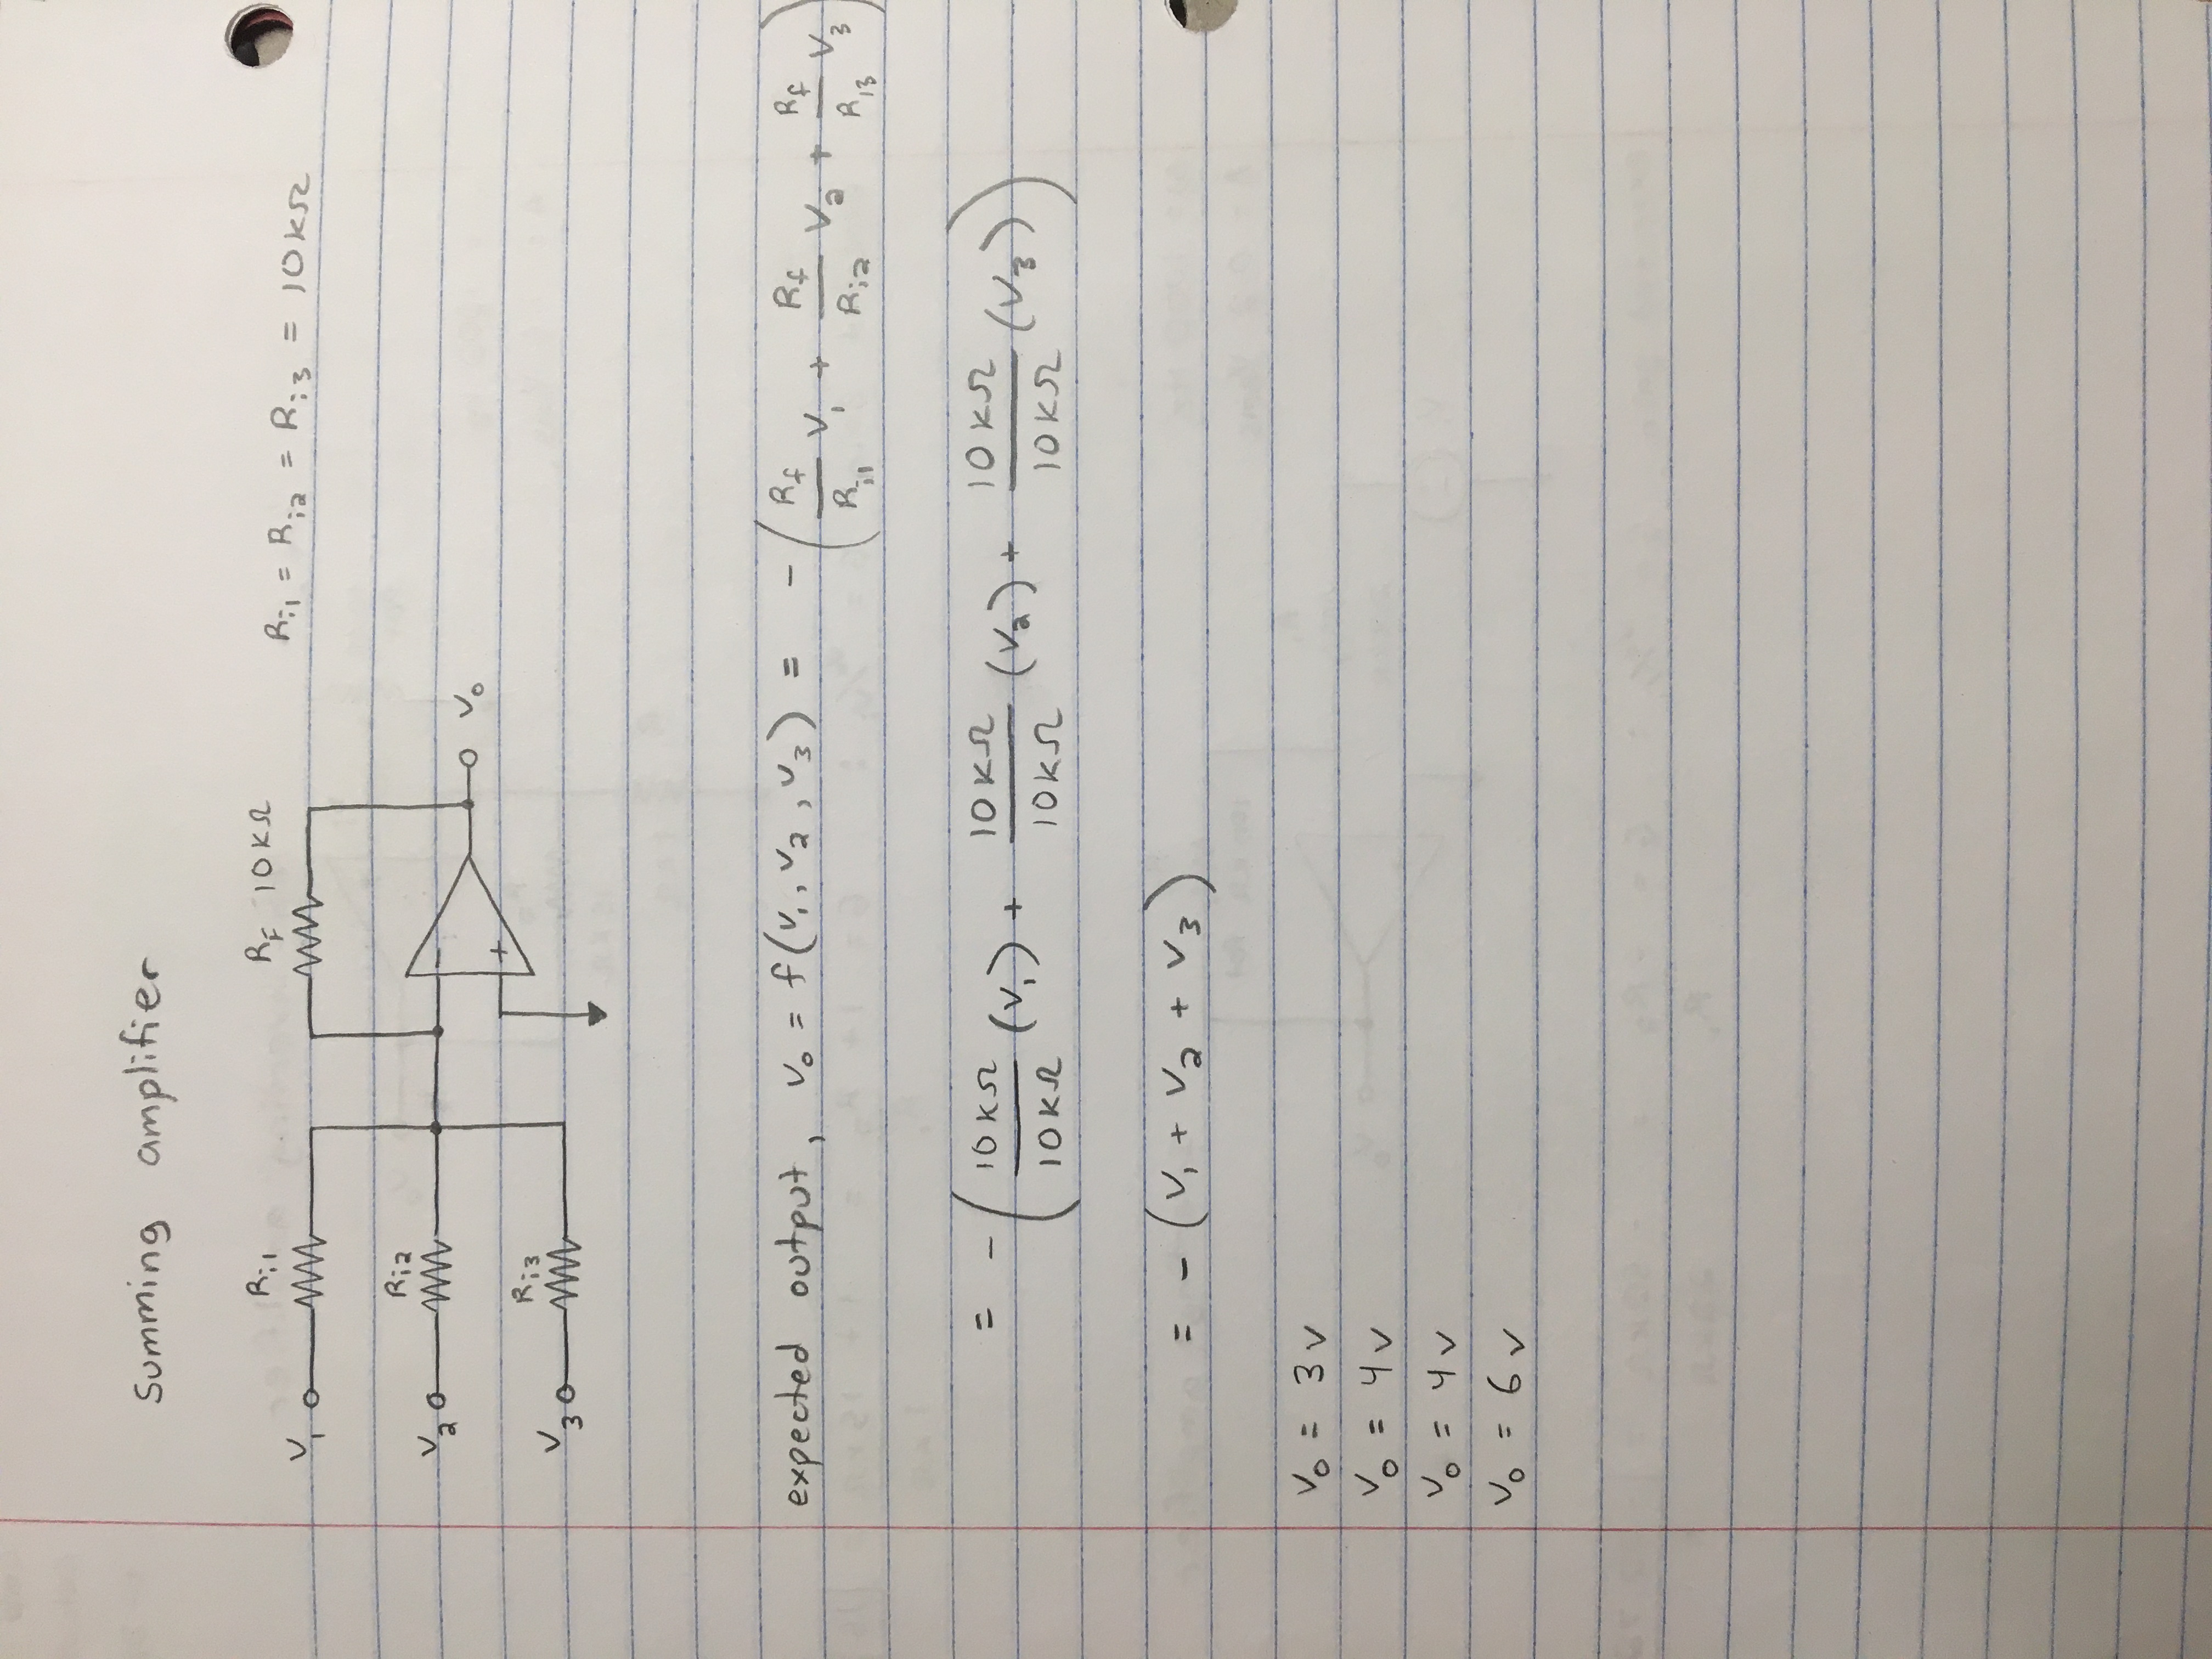 Summing amplifier
Ri1
RF 10kΩ
Ri1 = Ri2 = Ri3 = 10kΩ
V1
Ri2
V2
-
Vo
+
Ri3
V3
expected output, Vo = f(V1, V2, V3) = -(Rf/Ri1 V1 + Rf/Ri2 V2 + Rf/Ri3 V3)
= -(10kΩ/10kΩ (V1) + 10kΩ/10kΩ (V2) + 10kΩ/10kΩ (V3))
= -(V1 + V2 + V3)
Vo = 3v
Vo = 4v
Vo = 4v
Vo = 6v